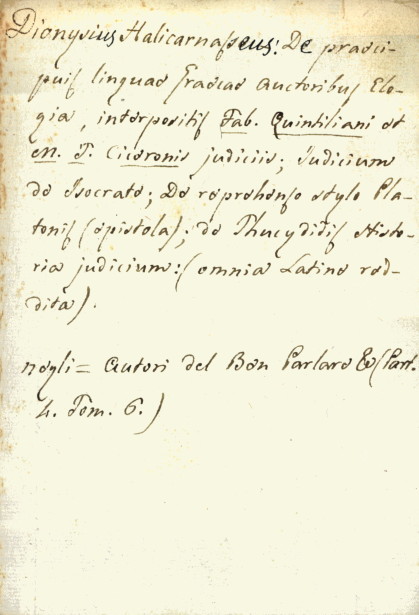 Dionysius Halicarnasseus: De praeci-
puis linguae Graecae Auctoribus Elo-
gia, interpositis Fab. Quintiliani et
M. T. Ciceronis judiciis; Judicium
de Isocrate; De reprehenso stylo Pla-
tonis (epistola); de Thucydidis Histo-
ria judicium: (omnia Latine red-
dita).
negli = Autori del Ben Parlare &c (Part.
4. Tom. 6.)